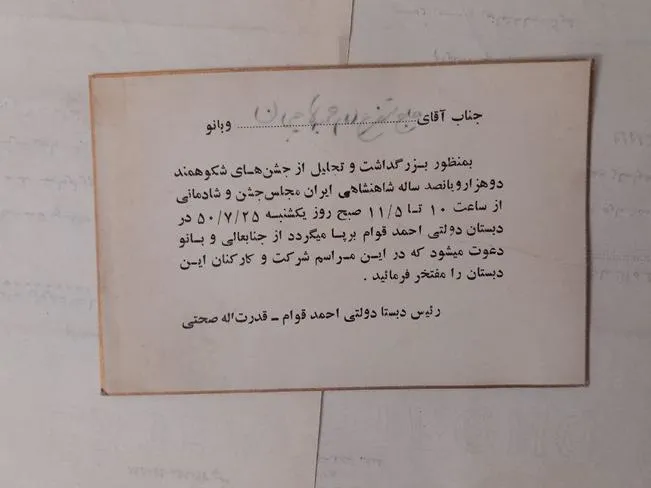 جناب آقای ........................ وبانو
بمنظور بزرگداشت و تجلیل از جشن‌های شکوهمند
دوهزاروپانصد ساله شاهنشاهی ایران مجلس‌جشن و شادمانی
از ساعت ۱۰ تا ۱۱/۵ صبح روز یکشنبه ۵۰/۷/۲۵ در
دبستان دولتی احمد قوام برپا میگردد از جنابعالی و بانو
دعوت میشود که در این مراسم شرکت و کارکنان این
دبستان را مفتخر فرمائید .
رئیس دبستا دولتی احمد قوام ـ قدرت‌اله صحتی